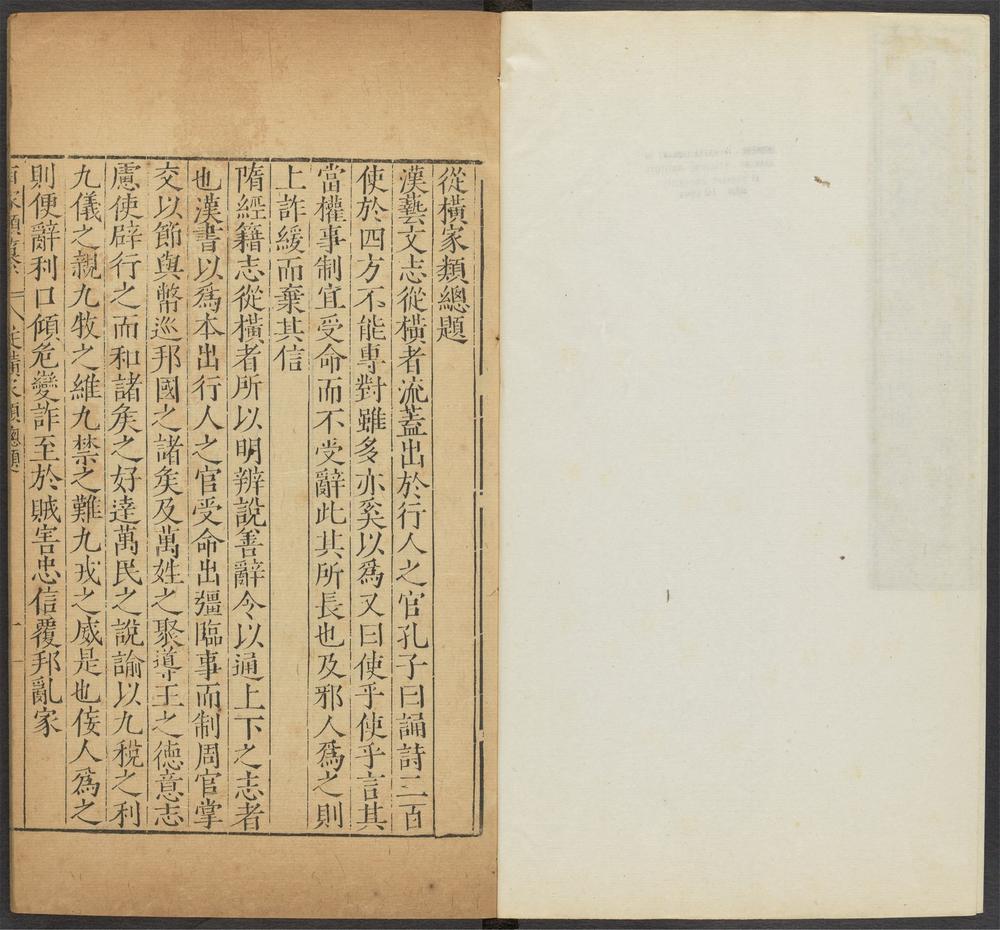 從橫家類總題
漢藝文志從橫者流蓋出於行人之官孔子曰誦詩三百
使於四方不能專對雖多亦奚以爲又曰使乎使乎言其
當權事制宜受命而不受辭此其所長也及邪人爲之則
上詐緩而棄其信
隋經籍志從橫者所以明辨說善辭令以通上下之志者
也漢書以爲本出行人之官受命出彊臨事而制周官掌
交以節與幣巡邦國之諸矦及萬姓之聚導王之德意志
慮使辟行之而和諸矦之好達萬民之說諭以九稅之利
九儀之親九牧之維九禁之難九戎之威是也佞人爲之
則便辭利口傾危變詐至於賊害忠信覆邦亂家
家類 家類總題 一